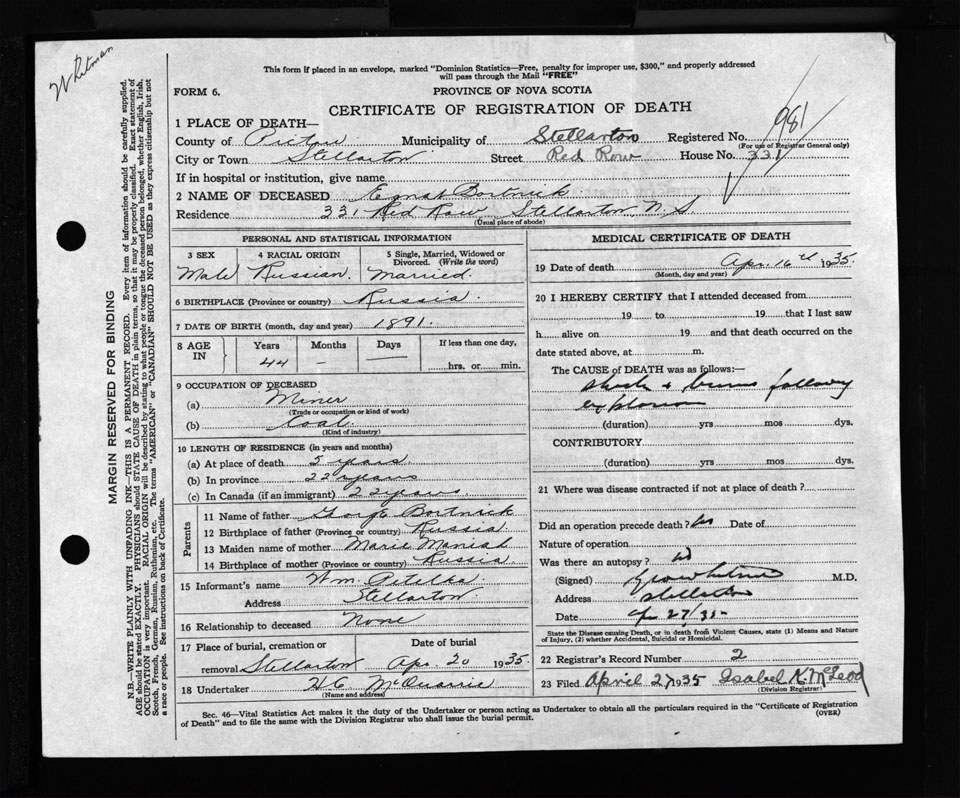 Whitman
This form if placed in an envelope, marked "Dominion Statistics—Free, penalty for improper use, $300," and properly addressed
will pass through the Mail "FREE"
FORM 6.
PROVINCE OF NOVA SCOTIA
CERTIFICATE OF REGISTRATION OF DEATH
981
1 PLACE OF DEATH—
County of Pictou Municipality of Stellarton Registered No.
(For use of Registrar General only)
City or Town Stellarton Street Red Row House No. 331
If in hospital or institution, give name
2 NAME OF DECEASED Ernst Bortnick
Residence 331 Red Row Stellarton N.S.
(Usual place of abode)
PERSONAL AND STATISTICAL INFORMATION
3 SEX 4 RACIAL ORIGIN 5 Single, Married, Widowed or
Divorced. (Write the word)
Male Russian. Married.
6 BIRTHPLACE (Province or country) Russia.
7 DATE OF BIRTH (month, day and year) 1891.
8 AGE IN Years Months Days If less than one day,
44 — — hrs. or min.
9 OCCUPATION OF DECEASED
(a) Miner
(Trade or occupation or kind of work)
(b) Coal.
(Kind of industry)
10 LENGTH OF RESIDENCE (in years and months)
(a) At place of death 5 years.
(b) In province 22 years
(c) In Canada (if an immigrant) 22 years.
Parents
11 Name of father Bortnick
12 Birthplace of father (Province or country) Russia.
13 Maiden name of mother Marie
14 Birthplace of mother (Province or country) Russia
15 Informant's name Wm.
Address Stellarton.
16 Relationship to deceased None
17 Place of burial, cremation or Date of burial
removal Stellarton Apr. 20 1935.
18 Undertaker H C McQuarrie
(Name and address)
MEDICAL CERTIFICATE OF DEATH
19 Date of death Apr 16th 1935
(Month, day and year)
20 I HEREBY CERTIFY that I attended deceased from
19 to 19 that I last saw
h alive on 19 and that death occurred on the
date stated above, at m.
The CAUSE OF DEATH was as follows:—
Shock + burns following
explosion
(duration) yrs mos dys.
CONTRIBUTORY
(duration) yrs mos dys.
21 Where was disease contracted if not at place of death?
Did an operation precede death? No Date of
Nature of operation
Was there an autopsy? No
(Signed) Whitman M.D.
Address Stellarton
Date 27/35
State the Disease causing Death, or in death from Violent Causes, state (1) Means and Nature
of Injury, (2) whether Accidental, Suicidal or Homicidal.
22 Registrar's Record Number 2
23 Filed April 27 1935 Isabel K. McLeod
(Division Registrar)
Sec. 46—Vital Statistics Act makes it the duty of the Undertaker or person acting as Undertaker to obtain all the particulars required in the "Certificate of Registration
of Death" and to file the same with the Division Registrar who shall issue the burial permit.
(OVER)
MARGIN RESERVED FOR BINDING
N.B.—WRITE PLAINLY WITH UNFADING INK—THIS IS A PERMANENT RECORD. Every item of information should be carefully supplied.
AGE should be stated EXACTLY. PHYSICIANS should STATE CAUSE OF DEATH in plain terms, so that it may be properly classified. Exact statement of
OCCUPATION is very important. RACIAL ORIGIN will be described by stating to what people or tongue the deceased person belonged, whether English, Irish,
Scotch, French, German, Russian, Ruthenian, etc. The terms "AMERICAN" or "CANADIAN" SHOULD NOT BE USED as they express citizenship but not
a race or people. See instructions on back of Certificate.